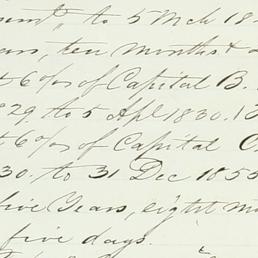 to 5 Mch 18
ten months &
6 % of Capital B.
29 to 5 Apl 1830. 
6 % of Capital C
30. to 31 Dec 1855
five Years, eight m
five days.